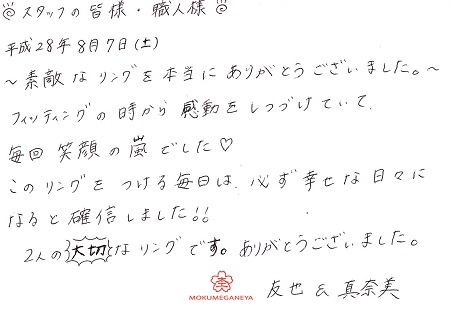 スタッフの皆様・職人様
平成28年8月7日(土)
〜素敵なリングを本当にありがとうございました。〜
フィッティングの時から感動をしつづけていて、
毎回笑顔の嵐でした♡
このリングをつける毎日は、必ず幸せな日々に
なると確信しました!!
2人の大切なリングです。ありがとうございました。
友也 & 真奈美
MOKUMEGANEYA